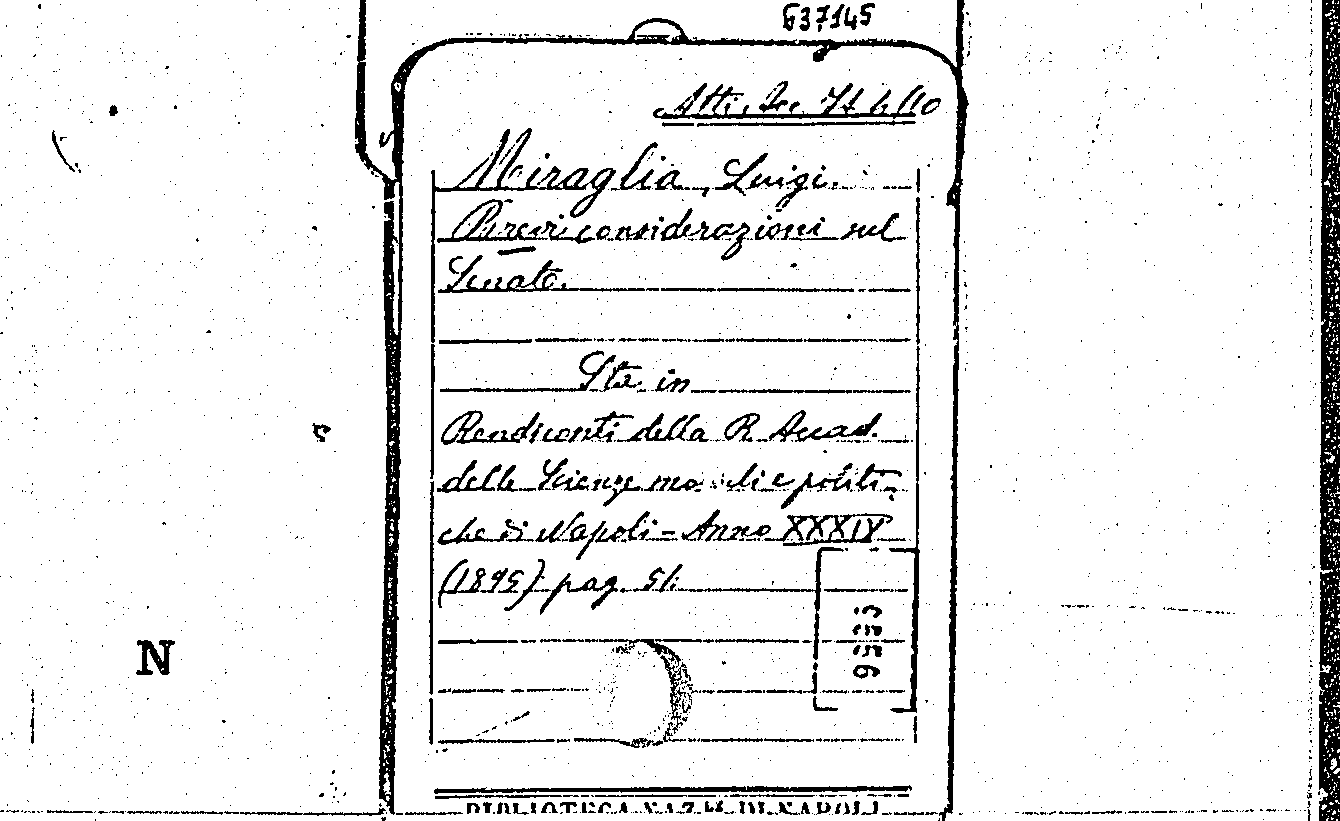 637145
Atti, Acc. 74 h/10
Miraglia, Luigi.
Brevi considerazioni sul
Senato.
Sta in
Rendiconti della R. Accad.
delle Scienze morali e politi-
che di Napoli - Anno XXXIV
(1895) pag. 51.
N
BIBLIOTECA NAZ. DI NAPOLI